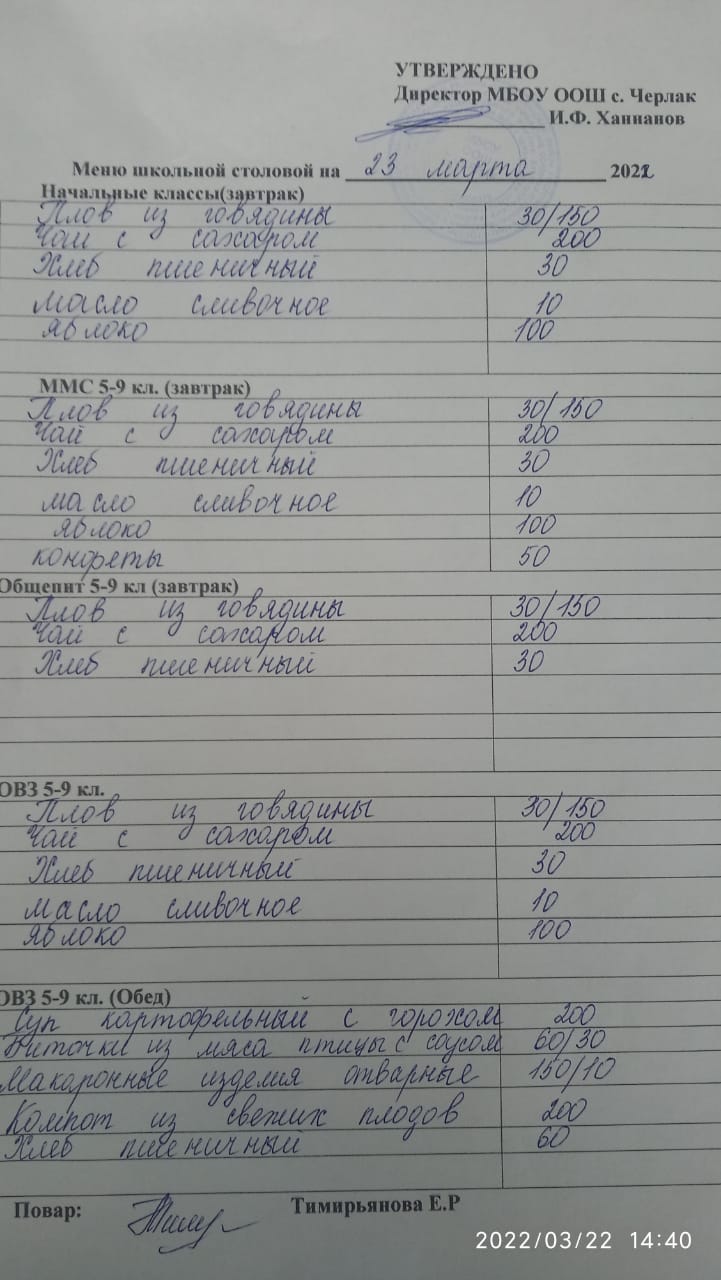 УТВЕРЖДЕНО
Директор МБОУ ООШ с. Черлак
И.Ф. Ханнанов
Меню школьной столовой на 23 марта 2022
Начальные классы(завтрак)
Плов из говядины 30/150
Чай с сахаром 200
Хлеб пшеничный 30
масло сливочное 10
яблоко 100
ММС 5-9 кл. (завтрак)
Плов из говядины 30/150
Чай с сахаром 200
Хлеб пшеничный 30
масло сливочное 10
яблоко 100
конфеты 50
Общепит 5-9 кл (завтрак)
Плов из говядины 30/150
Чай с сахаром 200
Хлеб пшеничный 30
ОВЗ 5-9 кл.
Плов из говядины 30/150
Чай с сахаром 200
Хлеб пшеничный 30
масло сливочное 10
яблоко 100
ОВЗ 5-9 кл. (Обед)
Суп картофельный с горохом 200
Биточки из мяса птицы с соусом 60/30
Макаронные изделия отварные 150/10
Компот из свежих плодов 200
Хлеб пшеничный 60
Повар: Тимирьянова Е.Р
2022/03/22 14:40